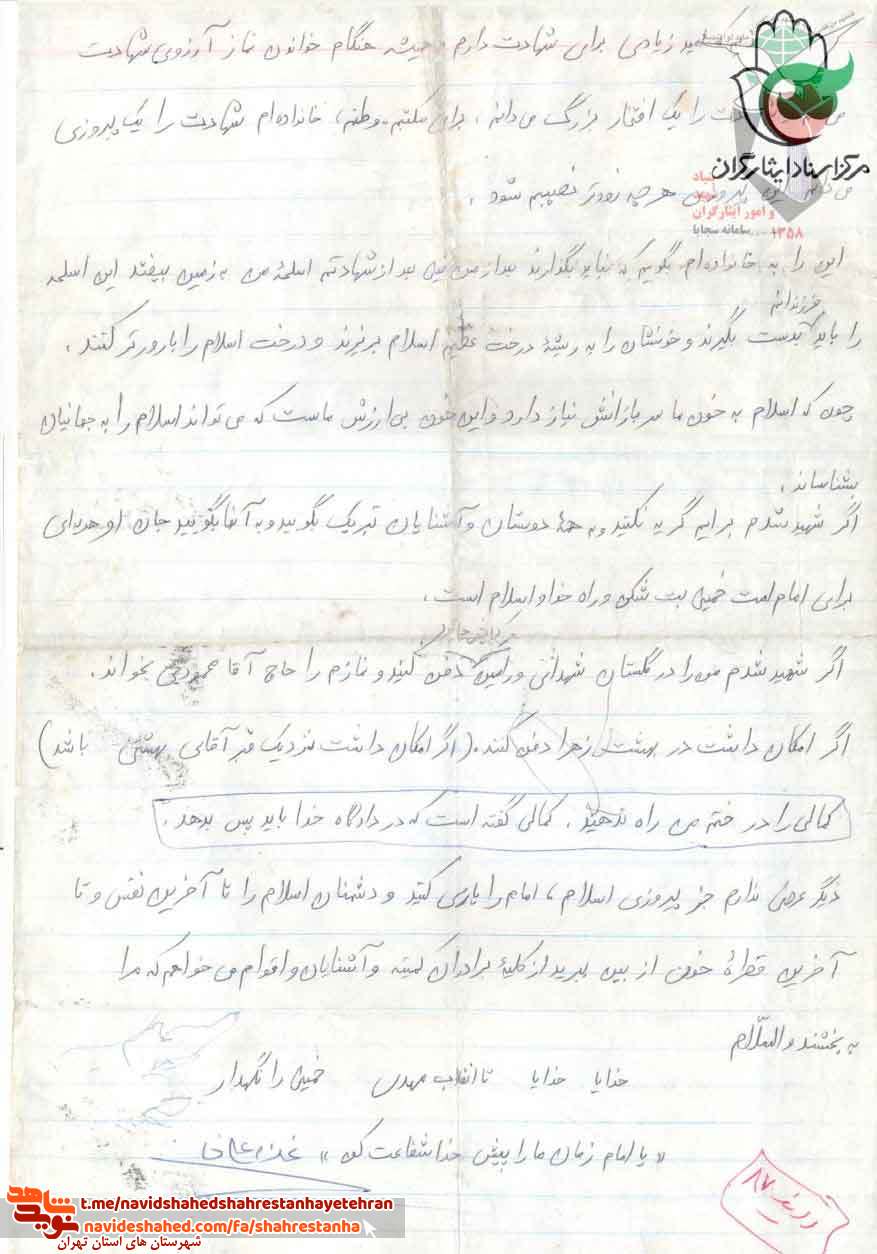 امید زیادی برای شهادت دارم و همیشه هنگام خواندن نماز آرزوی شهادت
را یک افتخار بزرگ می‌دانم، برای مکتبم، وطنم، خانواده‌ام شهادت را یک پیروزی
این پیروزی هر چه زودتر نصیبم شود.
این را به خانواده‌ام بگویم که نباید بگذارند بعد از من یعنی بعد از شهادتم اسلحهٔ من به زمین بیفتد این اسلحه
فرزندانم
را باید بدست بگیرند و خونشان را به ریشهٔ درخت عظیم اسلام بریزند و درخت اسلام را بارورتر کنند.
چون که اسلام به خون ما سربازانش نیاز دارد و این خون بی‌ارزش ماست که می‌تواند اسلام را به جهانیان
بشناساند.
اگر شهید شدم برایم گریه نکنید و به همهٔ دوستان و آشنایان تبریک بگویید و به آنها بگویید جان او هدیه‌ای
برای امام امت خمینی بت شکن و راه خدا و اسلام است.
اگر شهید شدم من را در گلستان شهدای ورامین دفن کنید و نمازم را حاج آقا محمودی بخواند.
اگر امکان داشت در بهشت زهرا دفن کنند. (اگر امکان داشت نزدیک قبر آقای بهشتی باشد)
کمالی را در ختم من راه ندهید. کمالی گفته است که در دادگاه خدا باید پس بدهد.
دیگر عرضی ندارم جز پیروزی اسلام، امام را یاری کنید و دشمنان اسلام را تا آخرین نفس و تا
آخرین قطرهٔ خون از بین ببرید از کلیهٔ برادران کمیته و آشنایان و اقوام می‌خواهم که مرا
به بخشند والسّلام
خدایا خدایا تا انقلاب مهدی خمینی را نگهدار
«یا امام زمان ما را پیش خدا شفاعت کن»
مرکز اسناد ایثارگران
و امور ایثارگران
سامانه سجایا
۱۳۵۸
۸۷
شاهد
نوید
t.me/navidshahedshahrestanhayetehran
navideshahed.com/fa/shahrestanha
شهرستان های استان تهران